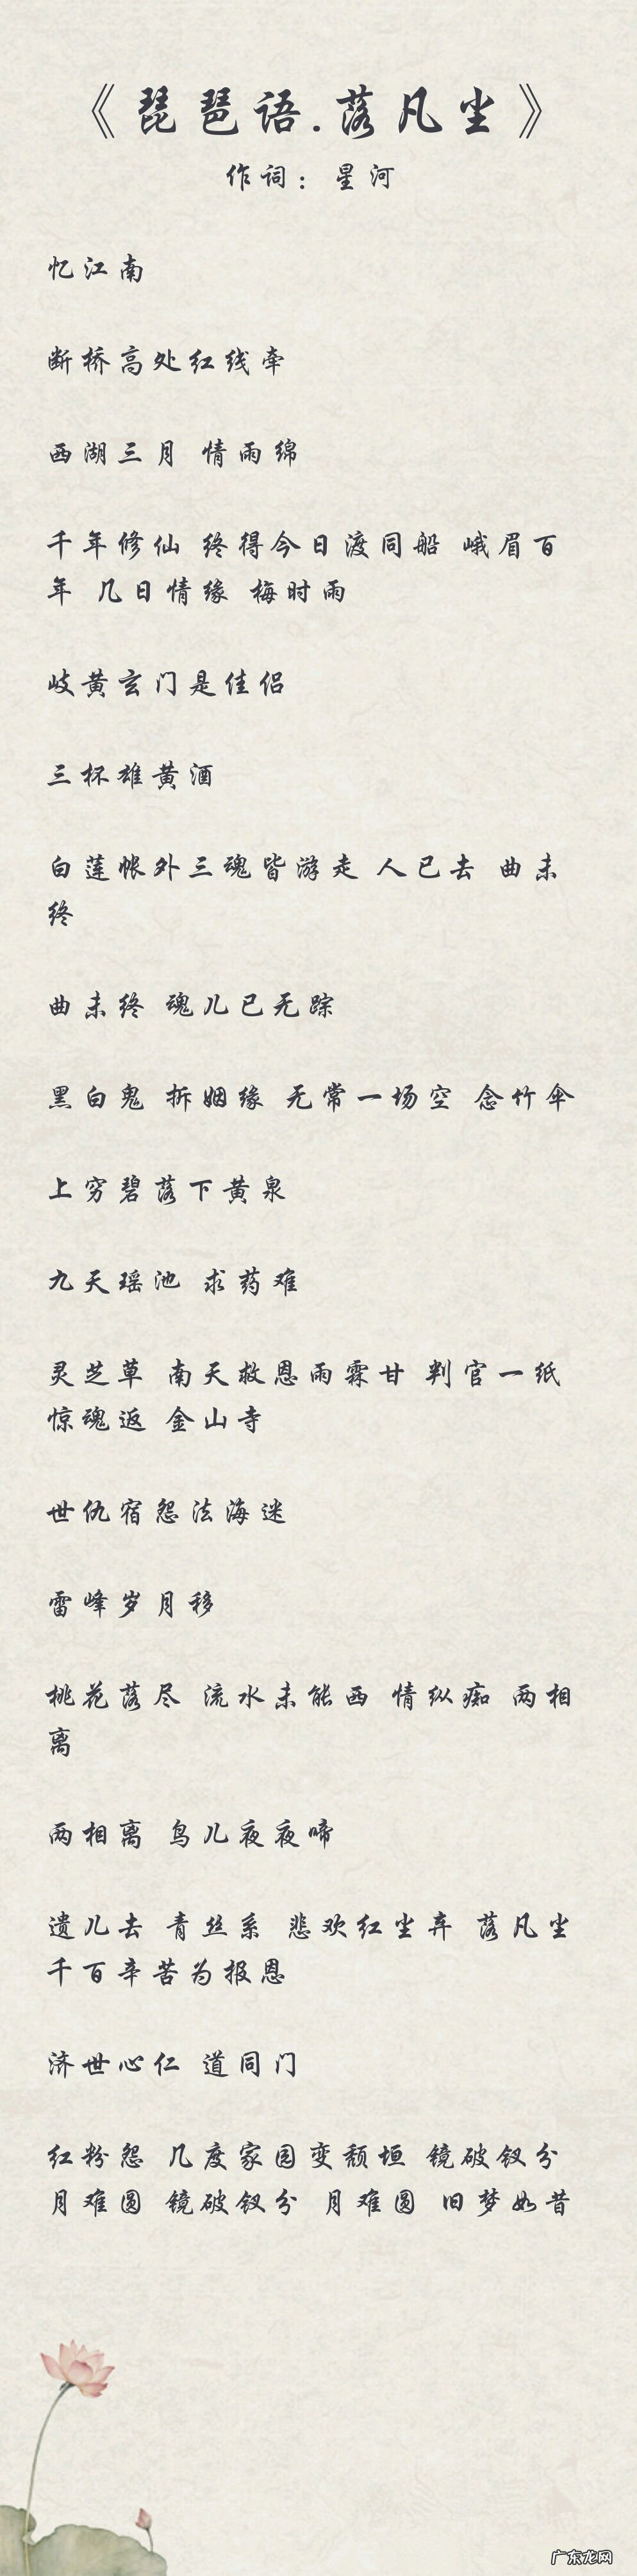 《琵琶语.落凡尘》
作词：星河
忆江南
断桥高处红线牵
西湖三月 情雨绵
千年修仙 终得今日渡同船 峨眉百
年 几日情缘 梅时雨
岐黄玄门是佳侣
三杯雄黄酒
白莲帐外三魂皆游走 人已去 曲未
终
曲未终 魂儿已无踪
黑白鬼 拆姻缘 无常一场空 念竹伞
上穷碧落下黄泉
九天瑶池 求药难
灵芝草 南天救恩雨霖甘 判官一纸
惊魂返 金山寺
世仇宿怨法海迷
雷峰岁月移
桃花落尽 流水未能西 情纵痴 两相
离
两相离 鸟儿夜夜啼
遗儿去 青丝系 悲欢红尘弃 落凡尘
千百辛苦为报恩
济世心仁 道同门
红粉怨 几度家园变颓垣 镜破钗分
月难圆 镜破钗分 月难圆 旧梦如昔
广东龙网